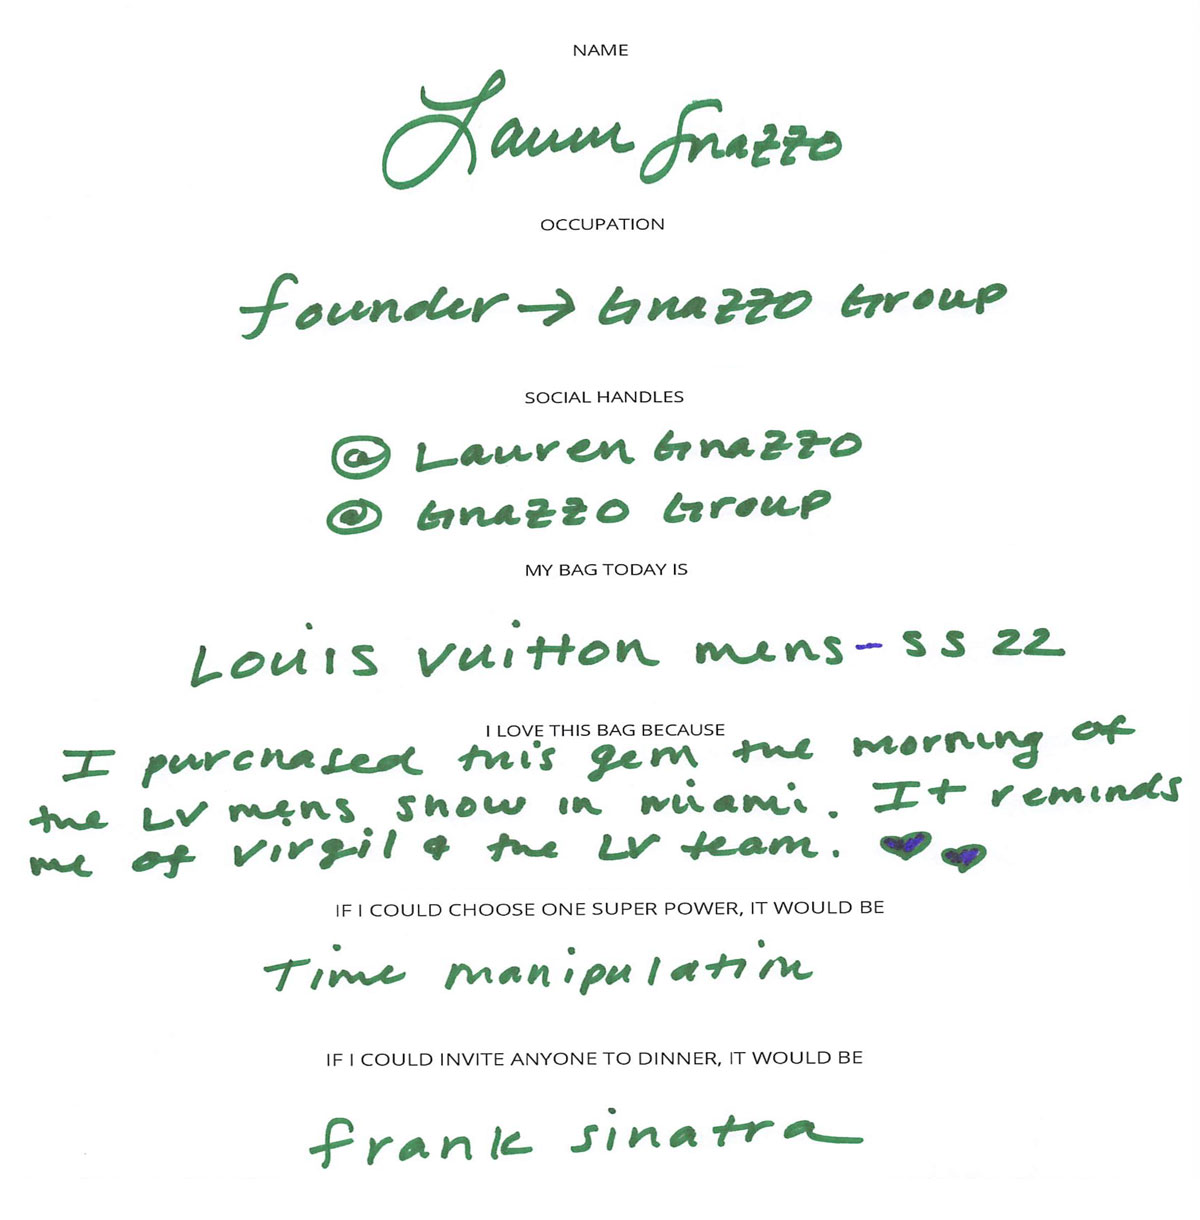 NAME
Lauren Gnazzo
OCCUPATION
founder → Gnazzo Group
SOCIAL HANDLES
@ Lauren Gnazzo
@ Gnazzo Group
MY BAG TODAY IS
Louis Vuitton mens - SS 22
I LOVE THIS BAG BECAUSE
I purchased this gem the morning of
the LV mens show in miami. It reminds
me of Virgil & the LV team. 
IF I COULD CHOOSE ONE SUPER POWER, IT WOULD BE
Time manipulation
IF I COULD INVITE ANYONE TO DINNER, IT WOULD BE
frank sinatra